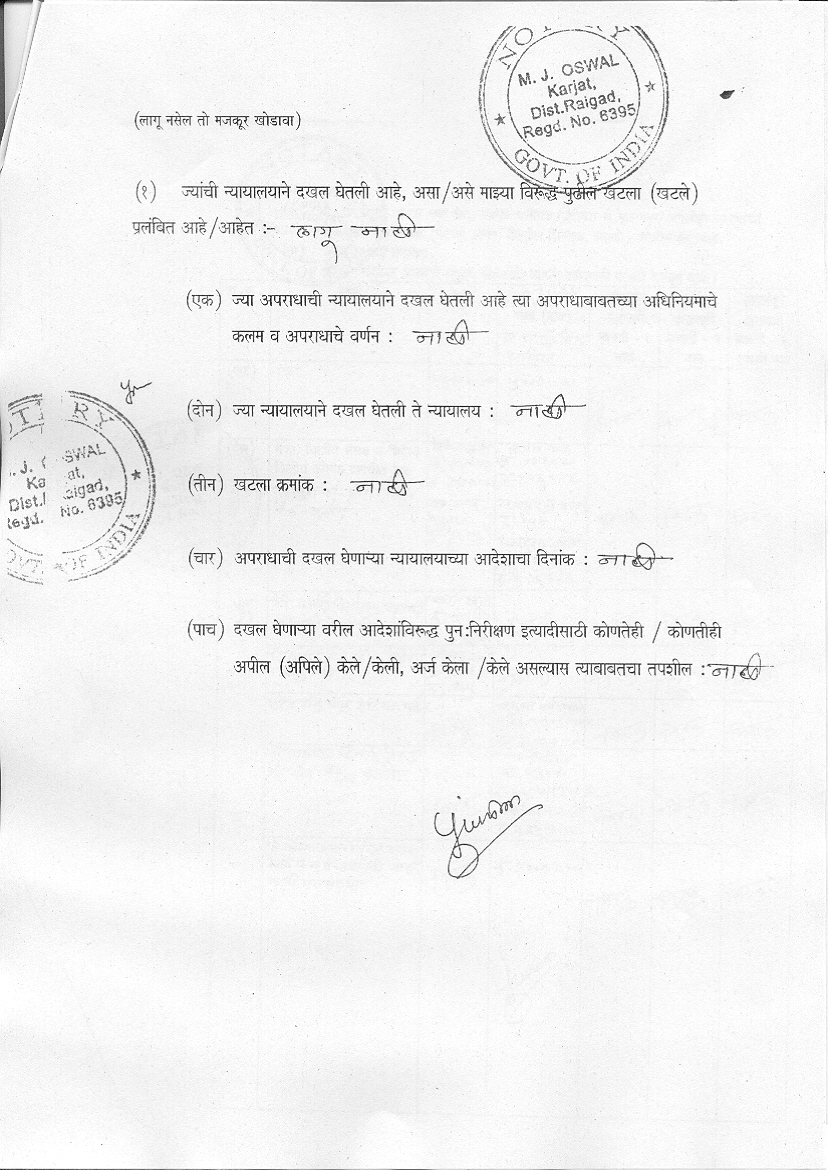 NOTARY
M. J. OSWAL
Karjat,
Dist.Raigad,
Regd. No. 6395
GOVT. OF INDIA
(लागू नसेल तो मजकूर खोडावा)
(१) ज्यांची न्यायालयाने दखल घेतली आहे, असा/असे माझ्या विरूद्ध पुढील खटला (खटले)
प्रलंवित आहे/आहेत :- लागू नाही
(एक) ज्या अपराधाची न्यायालयाने दखल घेतली आहे त्या अपराधाबावतच्या अधिनियमाचे
कलम व अपराधाचे वर्णन : नाही
(दोन) ज्या न्यायालयाने दखल घेतली ते न्यायालय : नाही
OTARY
. J. OSWAL
Karjat,
Dist.Raigad,
Regd. No. 6395
OVT. OF INDIA
(तीन) खटला क्रमांक : नाही
(चार) अपराधाची दखल घेणाऱ्या न्यायालयाच्या आदेशाचा दिनांक : नाही
(पाच) दखल घेणाऱ्या वरील आदेशांविरूद्ध पुन:निरीक्षण इत्यादीसाठी कोणतेही / कोणतीही
अपील (अपिले) केले/केली, अर्ज केला /केले असल्यास त्याबाबतचा तपशील : नाही